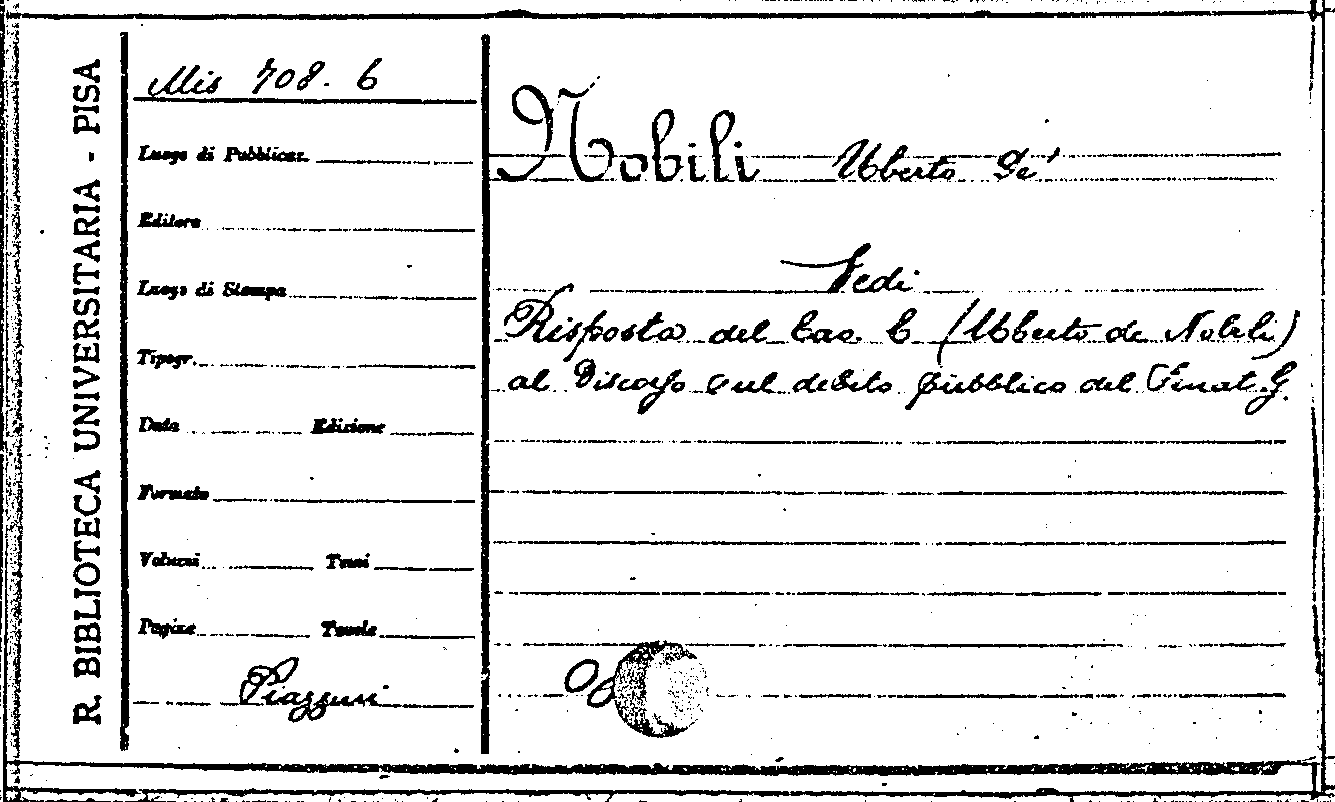 R. BIBLIOTECA UNIVERSITARIA - PISA
Mis 708. 6
Luogo di Pubblicaz.
Editore
Luogo di Stampa
Tipogr.
Data Edizione
Formato
Volumi Tomi
Pagine Tavole
Nobili Uberto De'
Vedi
Risposta del Cav. (Ubberto de Nobili)
al Discorso sul debito pubblico del Senat. G.